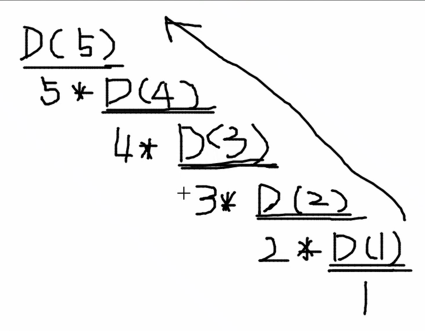 D(5)
5 * D(4)
4 * D(3)
3 * D(2)
2 * D(1)
1